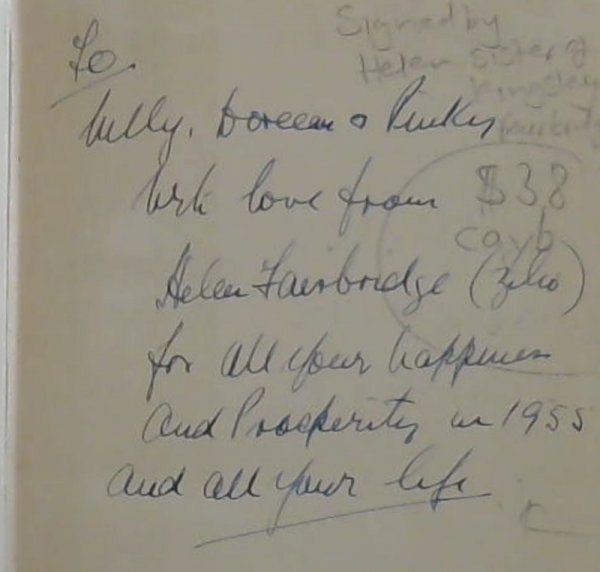 Signed by
Helen Sister of
Kingsley
Fairbridge
To
Willy, Doreen & Pinky
With love from
$38
cayb
Helen Fairbridge
for all your happiness
and Prosperity in 1955
and all your life